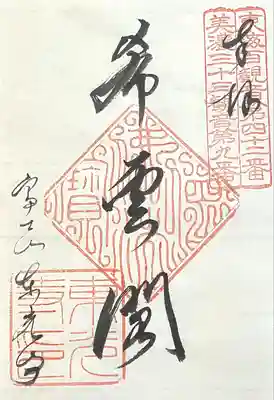 奉拝
東海百観音第四十二番
美濃三十三観音第九番
希雲閣
富士山
東光寺